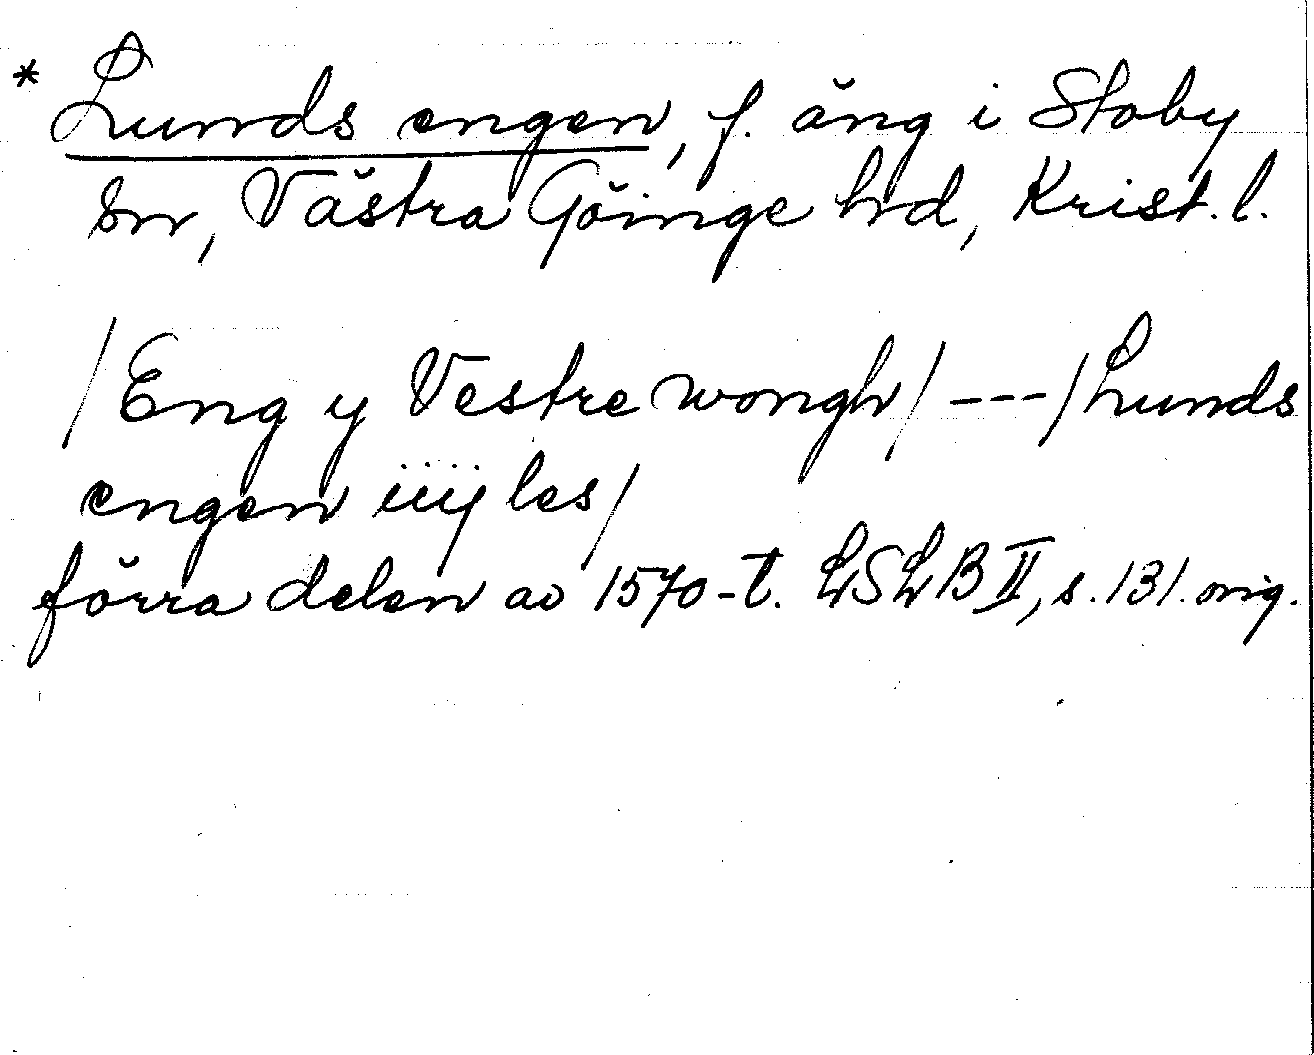 * Lunds engen, f. äng i Stoby
sn, Västra Göinge hd, Krist. l.
/Eng y Vestre wongh/ --- /Lunds
engen iiij les/
förra delen av 1570-t. LSLB II, s. 131. orig.